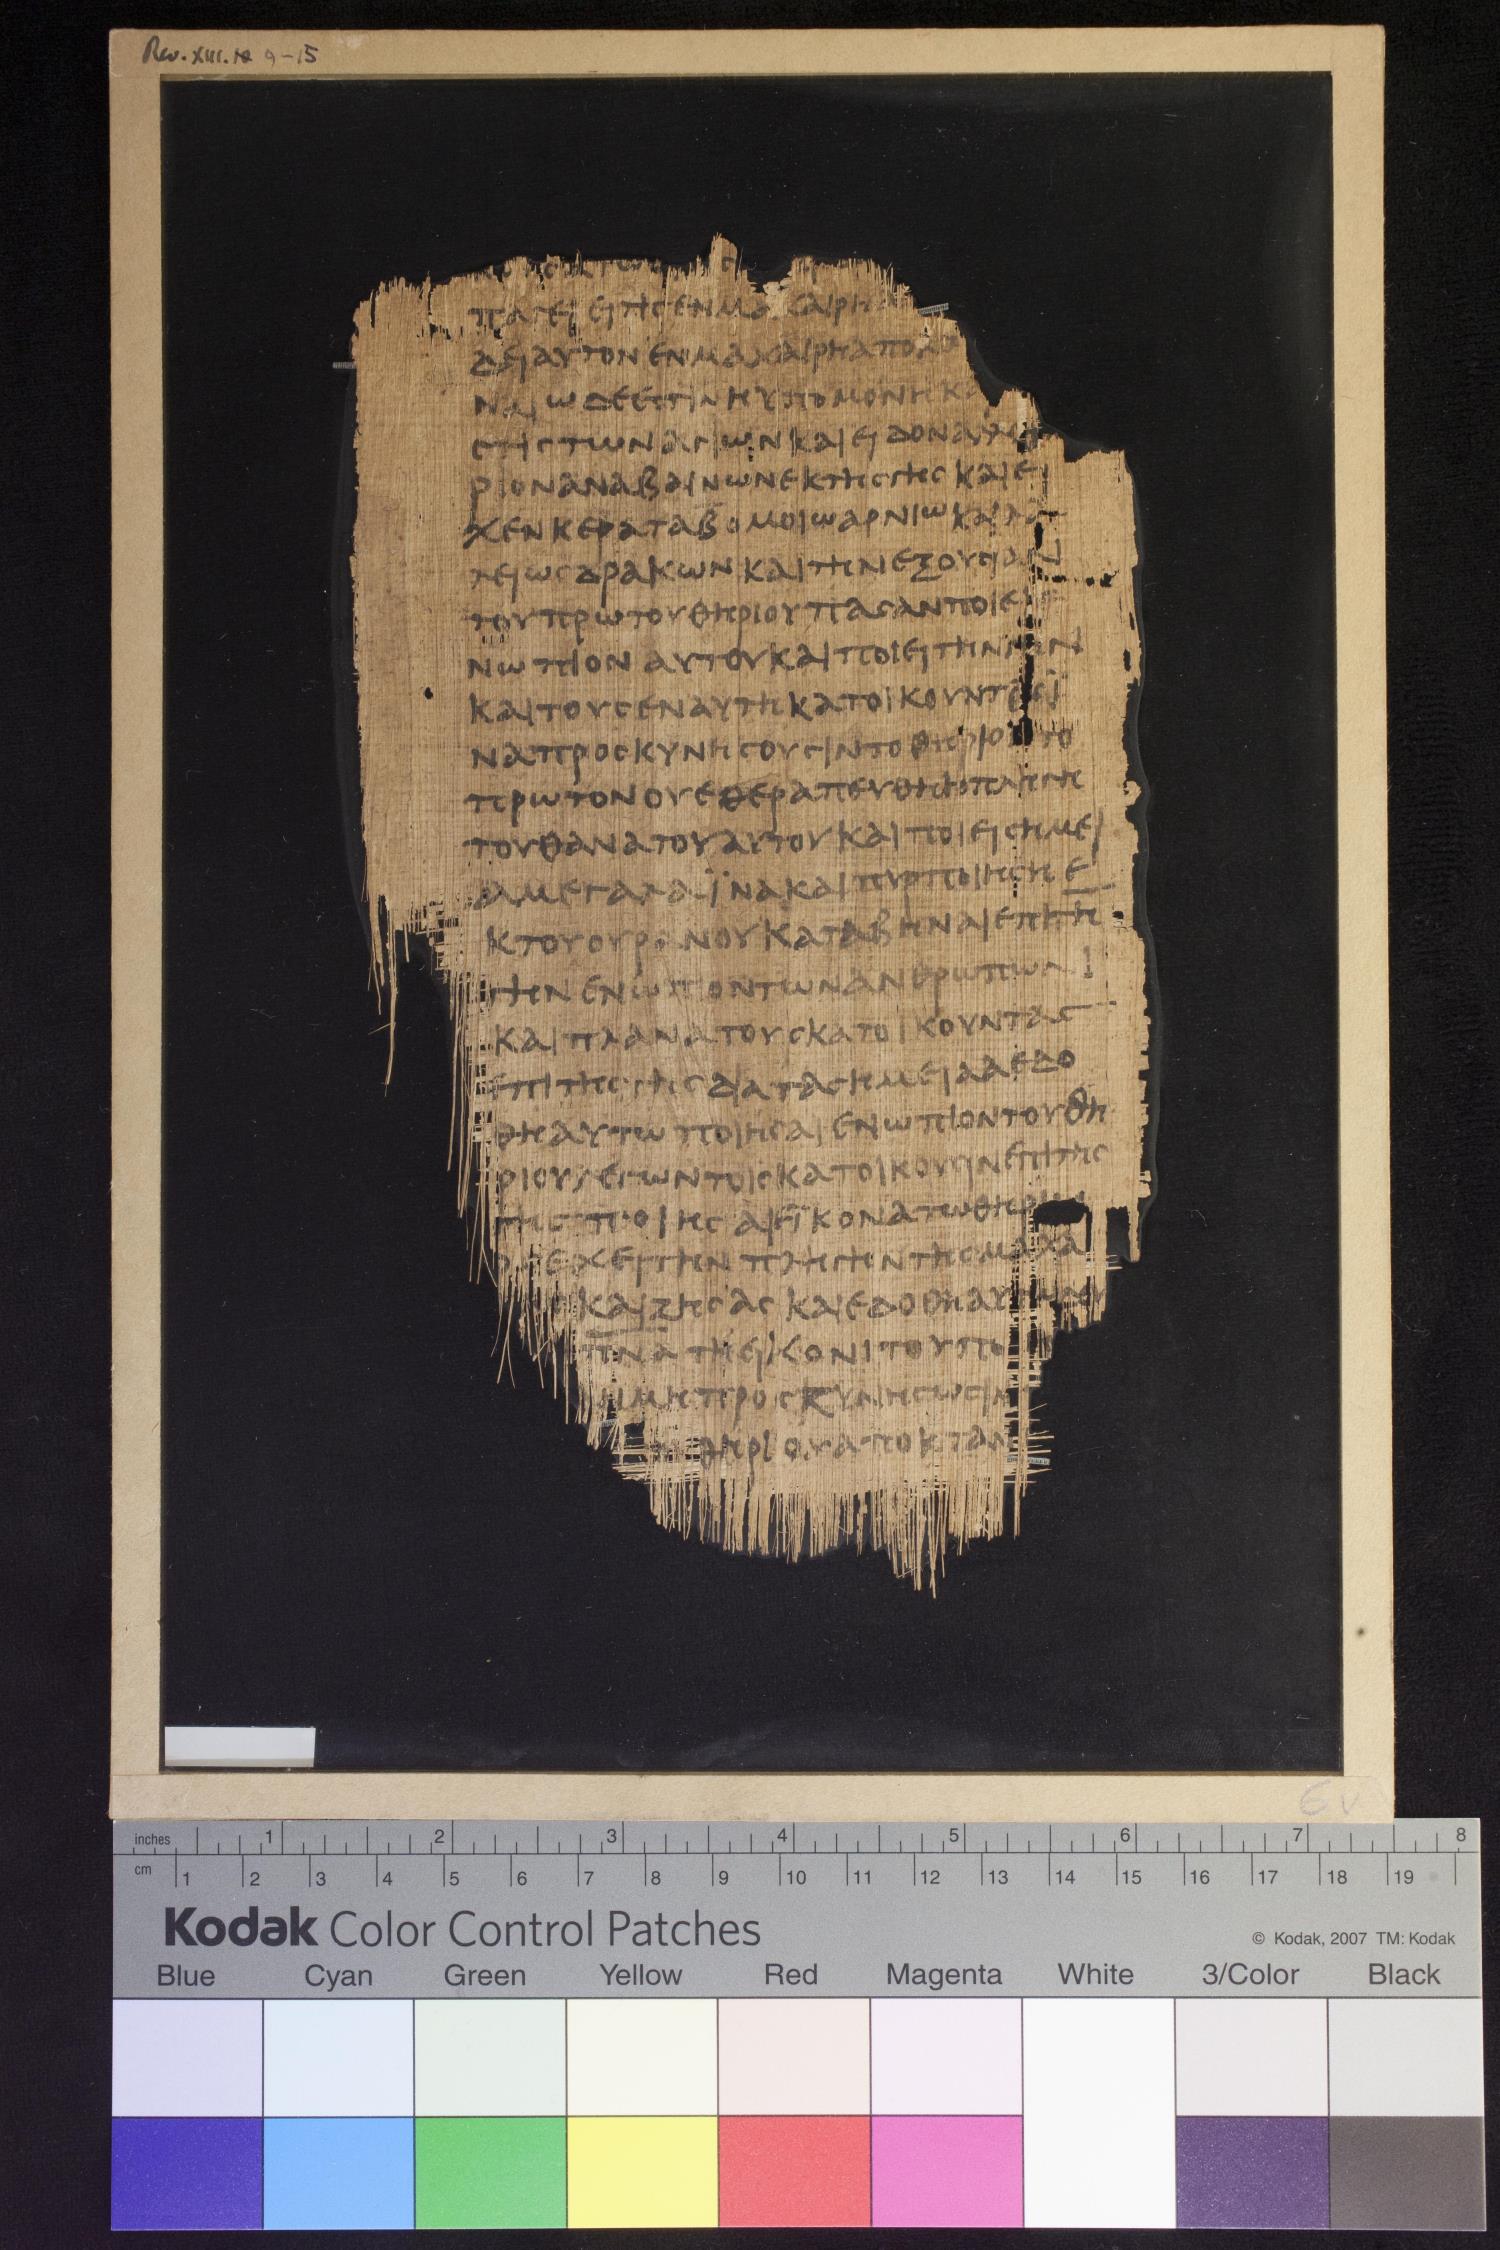 Rev. XIII. 9-15
ΠΑΓΕΙ ΕΙΤΙΣ ΕΝ ΜΑΧΑΙΡΗ
ΔΕΙ ΑΥΤΟΝ ΕΝ ΜΑΧΑΙΡΗ ΑΠΟΚ
ΝΑΙ ΩΔΕ ΕΣΤΙΝ Η ΥΠΟΜΟΝΗ ΚΑ
ΣΤΙΣ ΤΩΝ ΑΓΙΩΝ ΚΑΙ ΕΙΔΟΝ
ΡΙΟΝ ΑΝΑΒΑΙΝΩΝ ΕΚ ΤΗΣ ΓΗΣ ΚΑΙ ΕΙ
ΧΕΝ ΚΕΡΑΤΑ Β ΟΜΟΙΩ ΑΡΝΙΩ ΚΑΙ ΛΑ
ΛΕΙ ΩΣ ΔΡΑΚΩΝ ΚΑΙ ΤΗΝ ΕΞΟΥΣΙΑΝ
ΤΟΥ ΠΡΩΤΟΥ ΘΗΡΙΟΥ ΠΑΣΑΝ ΠΟΙΕΙ Ε
ΝΩΠΙΟΝ ΑΥΤΟΥ ΚΑΙ ΠΟΙΕΙ ΤΗΝ ΓΗΝ
ΚΑΙ ΤΟΥΣ ΕΝ ΑΥΤΗ ΚΑΤΟΙΚΟΥΝΤΕΣ Ϊ
ΝΑ ΠΡΟΣΚΥΝΗΣΟΥΣΙΝ ΤΟ ΘΗΡΙΟΝ ΤΟ
ΠΡΩΤΟΝ ΟΥ ΕΘΕΡΑΠΕΥΘΗ Η ΠΛΗΓΗ
ΤΟΥ ΘΑΝΑΤΟΥ ΑΥΤΟΥ ΚΑΙ ΠΟΙΕΙ ΣΗΜΕΙ
Α ΜΕΓΑΛΑ ΪΝΑ ΚΑΙ ΠΥΡ ΠΟΙΗΣΗ Ε
Κ ΤΟΥ ΟΥΡΑΝΟΥ ΚΑΤΑΒΗΝΑΙ ΕΠΙ ΤΗ
ΓΗΝ ΕΝΩΠΙΟΝ ΤΩΝ ΑΝΘΡΩΠΩΝ
ΚΑΙ ΠΛΑΝΑ ΤΟΥΣ ΚΑΤΟΙΚΟΥΝΤΑΣ
ΕΠΙ ΤΗΣ ΓΗΣ ΔΙΑ ΤΑ ΣΗΜΕΙΑ Α ΕΔΟ
ΘΗ ΑΥΤΩ ΠΟΙΗΣΑΙ ΕΝΩΠΙΟΝ ΤΟΥ ΘΗ
ΡΙΟΥ ΛΕΓΩΝ ΤΟΙΣ ΚΑΤΟΙΚΟΥΣΙΝ ΕΠΙ ΤΗΣ
ΓΗΣ ΠΟΙΗΣΑΙ ΕΪΚΟΝΑ ΤΩ ΘΗΡΙΩ
ΕΧΕΙ ΤΗΝ ΠΛΗΓΗΝ ΤΗΣ ΜΑΧΑ
ΚΑΙ ΖΗΣΑΣ ΚΑΙ ΕΔΟΘΗ ΑΥΤΩ
ΠΝΑ ΤΗ ΕΙΚΟΝΙ ΤΟΥ
ΜΗ ΠΡΟΣΚΥΝΗΣΩΣΙΝ
ΘΗΡΙΟΥ ΑΠΟΚΤΑΝ
6v
inches 1 2 3 4 5 6 7 8
cm 1 2 3 4 5 6 7 8 9 10 11 12 13 14 15 16 17 18 19
Kodak Color Control Patches
© Kodak, 2007 TM: Kodak
Blue Cyan Green Yellow Red Magenta White 3/Color Black